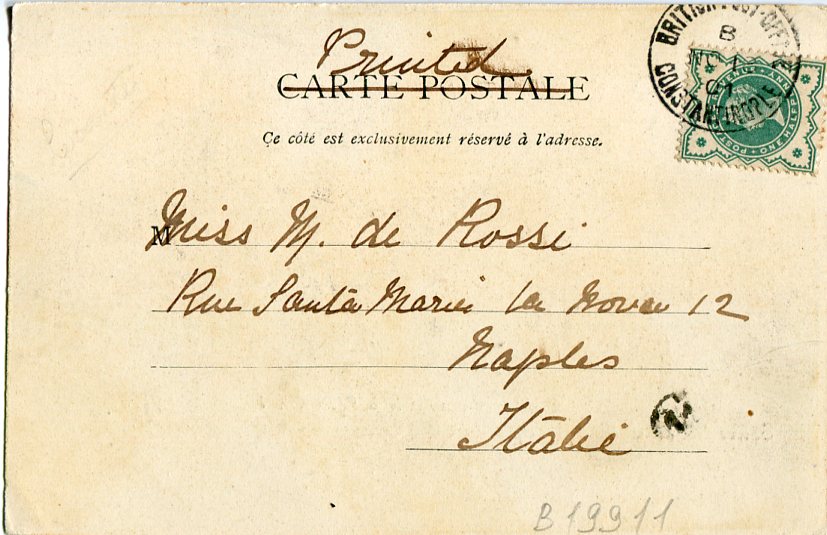 Printed
CARTE POSTALE
Ce côté est exclusivement réservé à l'adresse.
BRITISH POST-OFFICE
B
NO 1
01
CONSTANTINOPLE
POSTAGE
HALFPENNY
M
Miss M. de Rossi
Rue Santa Maria la Nova 12
Naples
Italie
B19911